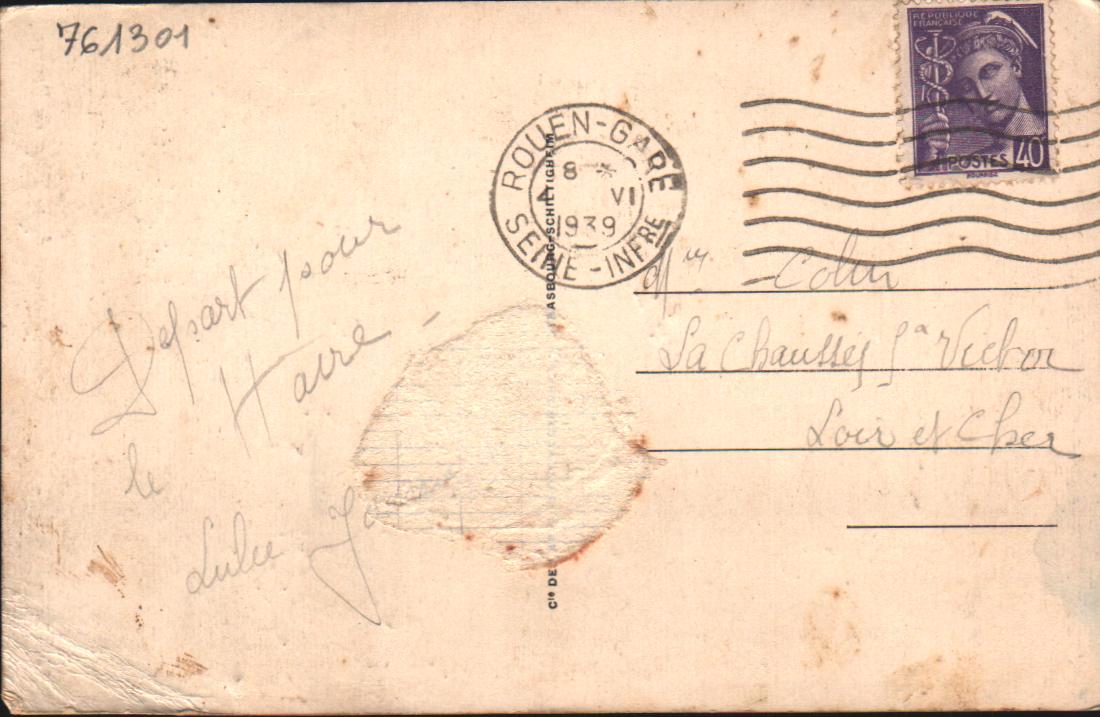 761301
RÉPUBLIQUE
FRANÇAISE
POSTES 40
ROUEN-GARE
8 *
4 VI
1939
SEINE-INFRE
ASBOURG-SCHILTIGHEIM
Cie DE
Mme Colin
La Chaussée St Victor
Loir et Cher
Départ pour
le Havre -